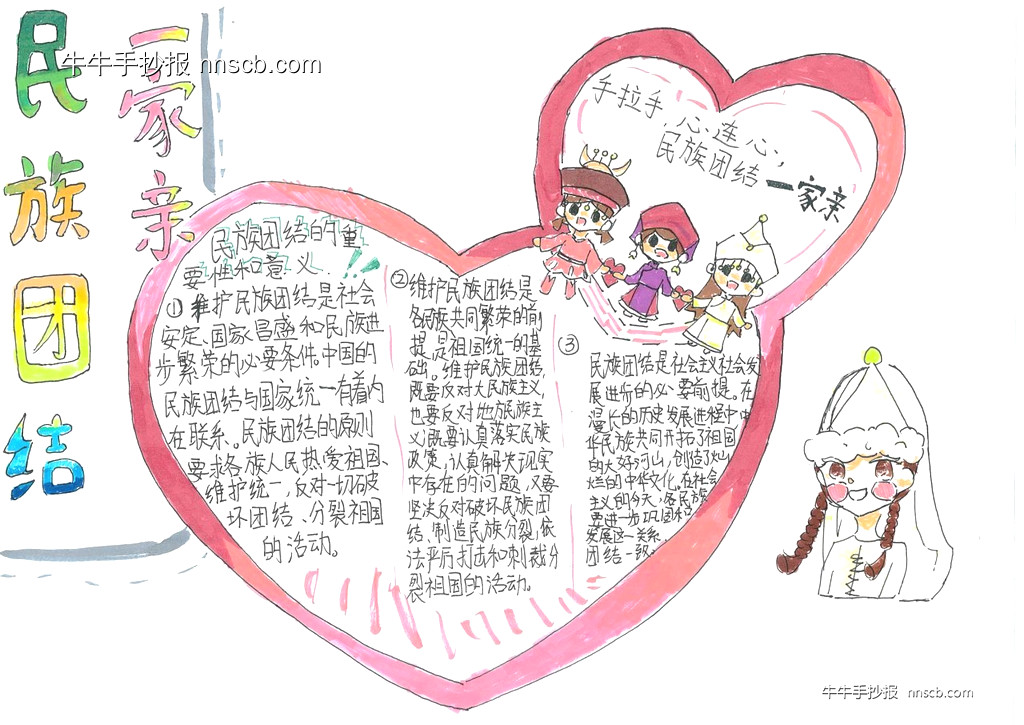 民族团结
一家亲
牛牛手抄报 nnscb.com
手拉手,心连心,
民族团结一家亲
民族团结的重
要性和意义!!
①维护民族团结是社会
安定、国家昌盛和民族进
步繁荣的必要条件。中国的
民族团结与国家统一有着内
在联系。民族团结的原则
要求各族人民热爱祖国、
维护统一,反对一切破
坏团结、分裂祖国
的活动。
②维护民族团结是
各民族共同繁荣的前
提,是祖国统一的基
础。维护民族团结,
既要反对大民族主义,
也要反对地方民族主
义;既要认真落实民族
政策,认真解决现实
中存在的问题,又要
坚决反对破坏民族团
结、制造民族分裂,依
法严厉打击和制裁分
裂祖国的活动。
③
民族团结是社会主义社会发
展进步的必要前提。在
漫长的历史发展进程中中
华民族共同开拓了祖国
的大好河山,创造了灿
烂的中华文化。在社会
主义的今天,各民族
要进一步巩固和
发展这一关系,
团结一致
牛牛手抄报 nnscb.com